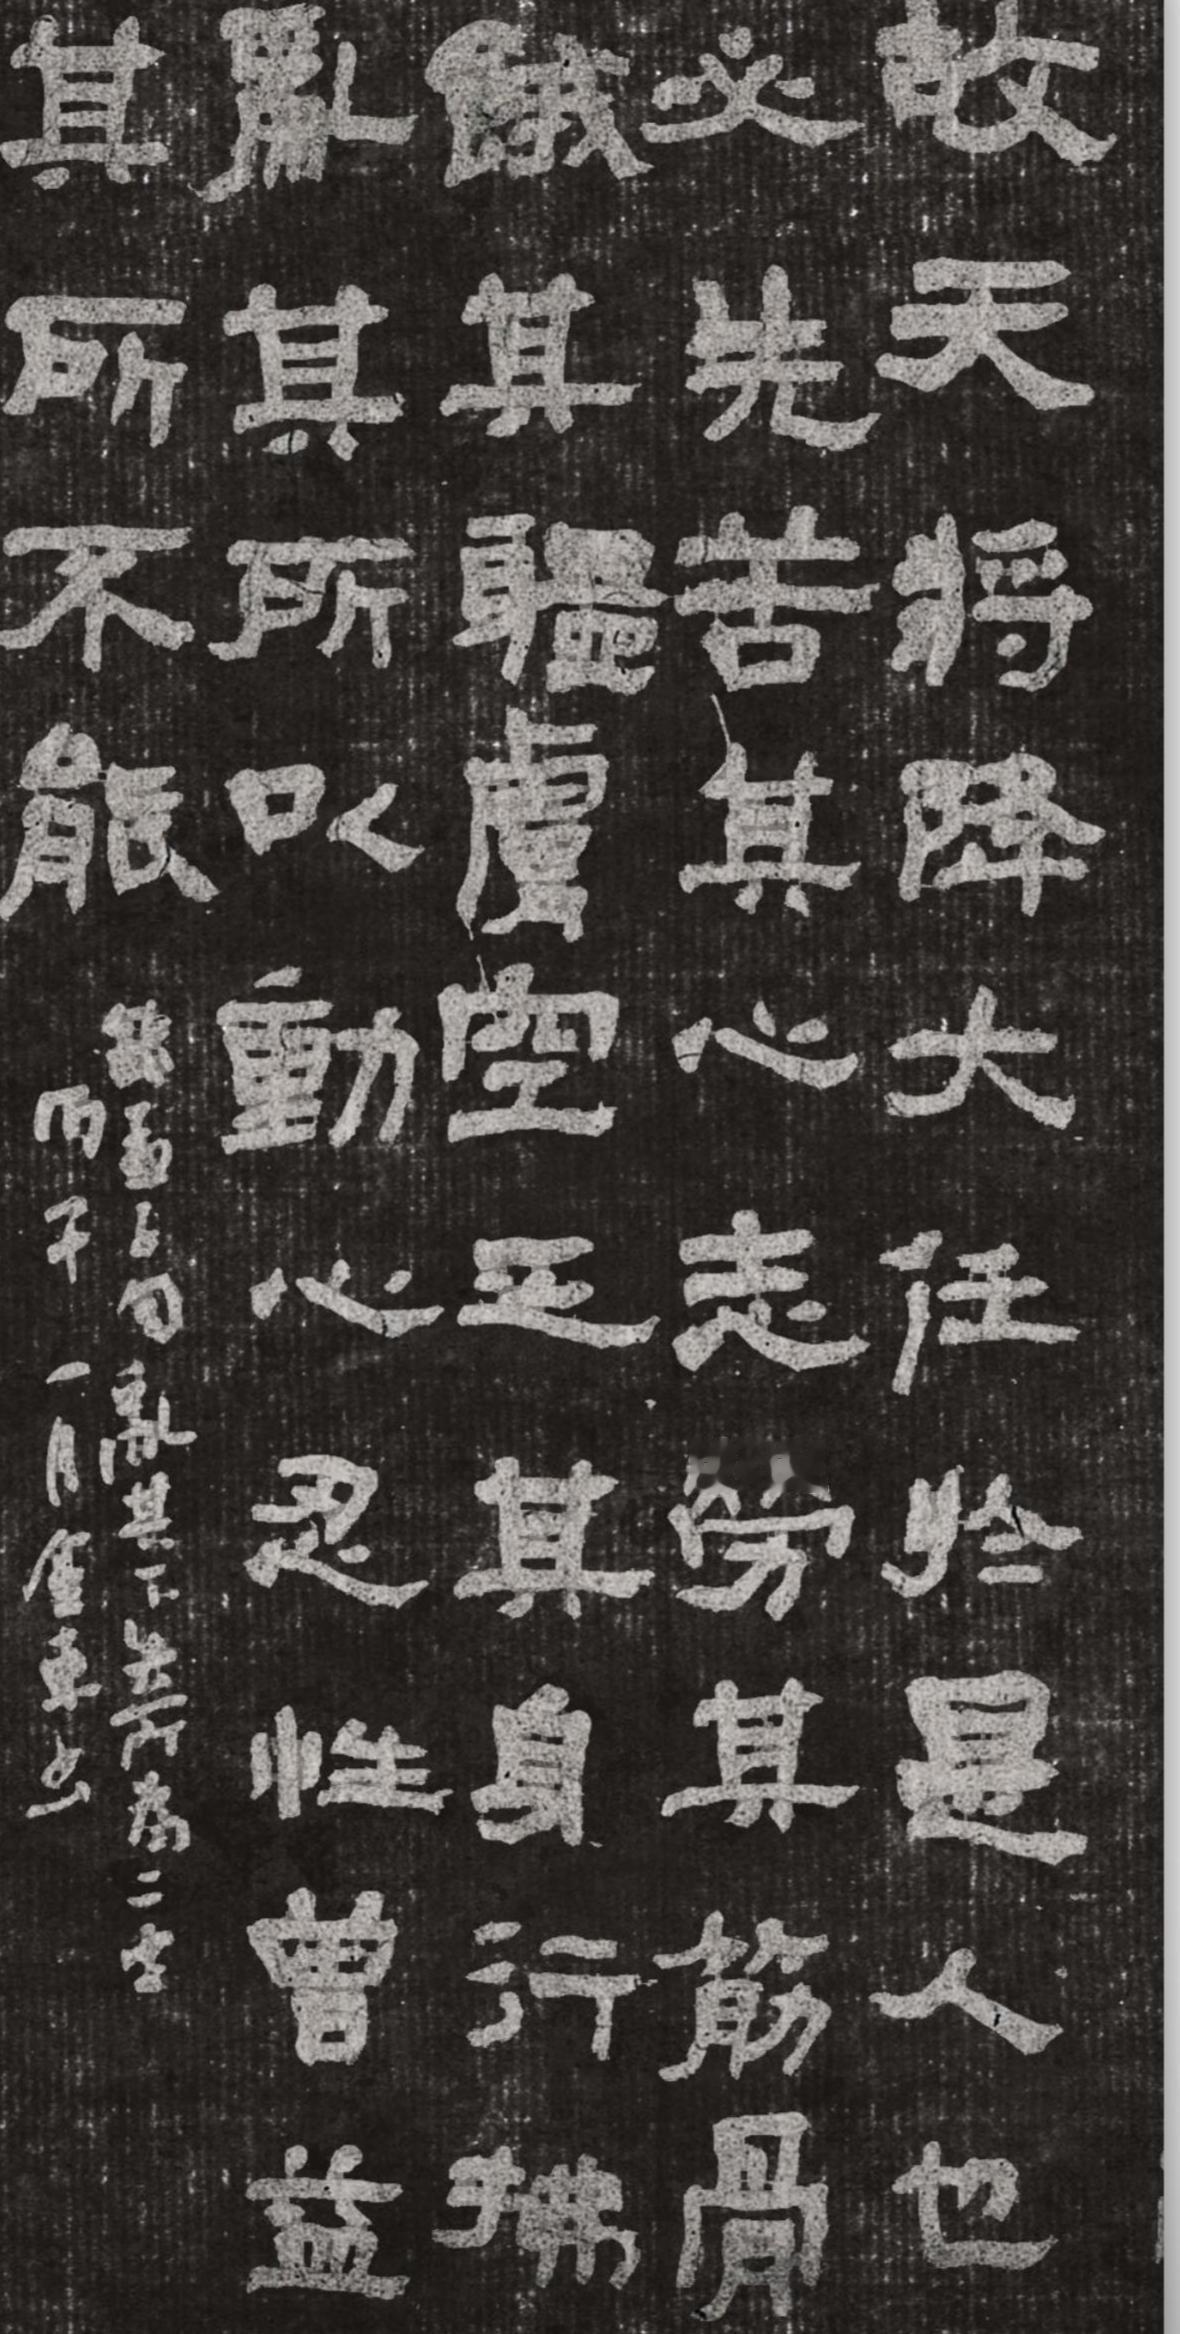 故天將降大任於是人也
必先苦其心志勞其筋骨
餓其體膚空乏其身行拂
亂其所以動心忍性曾益
其所不能
錄孟子句亂其下失所為二字
丙子一月